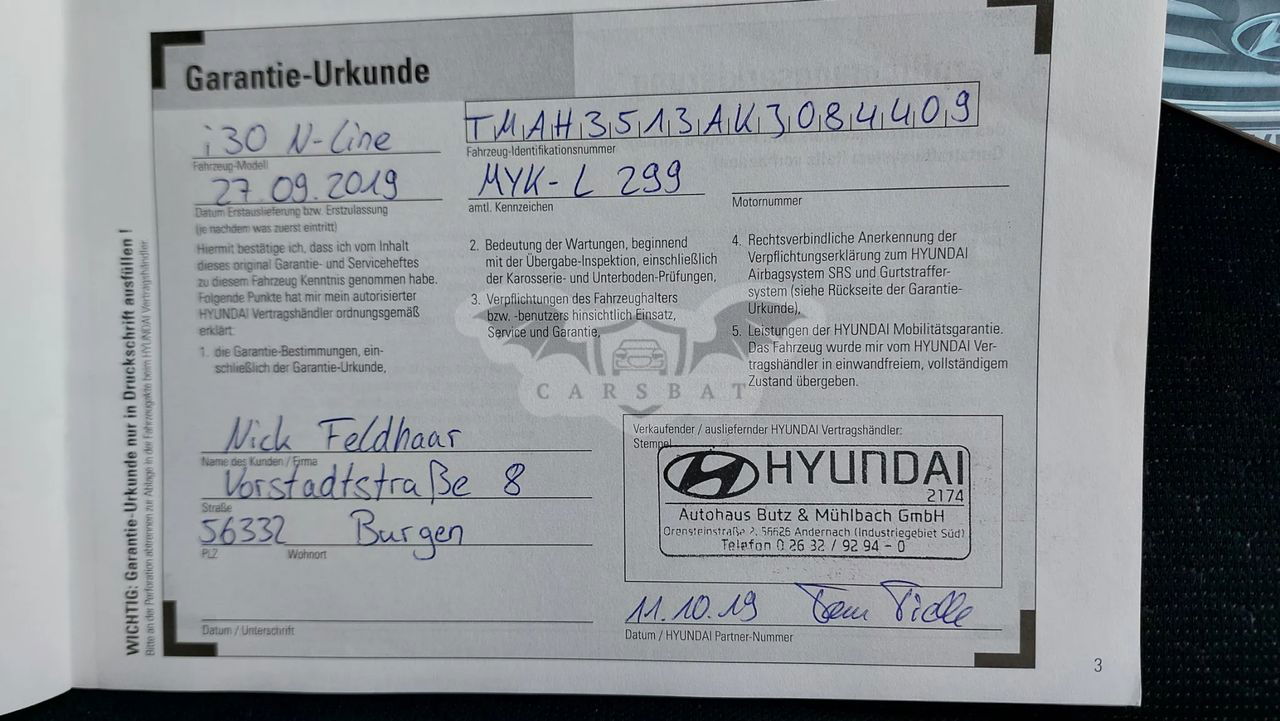 Garantie-Urkunde
i30 N-Line
Fahrzeug-Modell
TMAH3513AKJ084409
Fahrzeug-Identifikationsnummer
27.09.2019
Datum Erstauslieferung bzw. Erstzulassung
(je nachdem was zuerst eintritt)
MYK-L 299
amtl. Kennzeichen
Motornummer
Hiermit bestätige ich, dass ich vom Inhalt
dieses original Garantie- und Serviceheftes
zu diesem Fahrzeug Kenntnis genommen habe.
Folgende Punkte hat mir mein autorisierter
HYUNDAI Vertragshändler ordnungsgemäß
erklärt:
1. die Garantie-Bestimmungen, ein-
schließlich der Garantie-Urkunde,
2. Bedeutung der Wartungen, beginnend
mit der Übergabe-Inspektion, einschließlich
der Karosserie- und Unterboden-Prüfungen,
3. Verpflichtungen des Fahrzeughalters
bzw. -benutzers hinsichtlich Einsatz,
Service und Garantie,
4. Rechtsverbindliche Anerkennung der
Verpflichtungserklärung zum HYUNDAI
Airbagsystem SRS und Gurtstraffer-
system (siehe Rückseite der Garantie-
Urkunde),
5. Leistungen der HYUNDAI Mobilitätsgarantie.
Das Fahrzeug wurde mir vom HYUNDAI Ver-
tragshändler in einwandfreiem, vollständigem
Zustand übergeben.
CARSBAT
Nick Feldhaar
Name des Kunden / Firma
Vorstadtstraße 8
Straße
56332 Burgen
PLZ Wohnort
Datum / Unterschrift
Verkaufender / ausliefernder HYUNDAI Vertragshändler:
Stempel
HYUNDAI
2174
Autohaus Butz & Mühlbach GmbH
Orensteinstraße 2, 56626 Andernach (Industriegebiet Süd)
Telefon 0 26 32 / 92 94 - 0
11.10.19
Datum / HYUNDAI Partner-Nummer
WICHTIG: Garantie-Urkunde nur in Druckschrift ausfüllen !
Bitte an der Perforation abtrennen zur Ablage in der Fahrzeugakte beim HYUNDAI Vertragshändler
3